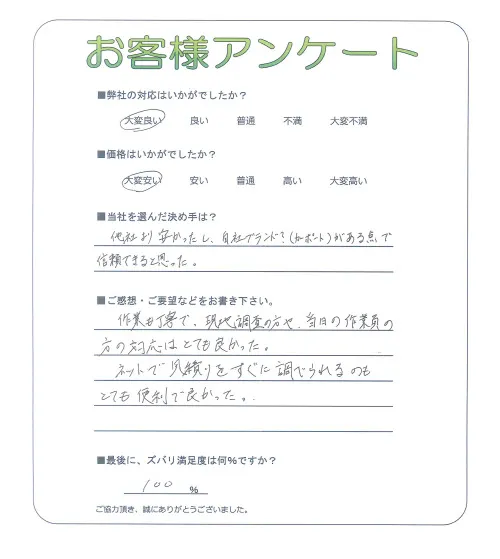 お客様アンケート
■弊社の対応はいかがでしたか？
大変良い 良い 普通 不満 大変不満
■価格はいかがでしたか？
大変安い 安い 普通 高い 大変高い
■当社を選んだ決め手は？
他社より安かったし、自社ブランド？(カーポート)がある点で
信頼できると思った。
■ご感想・ご要望などをお書き下さい。
作業も丁寧で、現地調査の方や、当日の作業員の
方の対応はとても良かった。
ネットで見積りをすぐに調べられるのも
とても便利で良かった。
■最後に、ズバリ満足度は何%ですか？
100 %
ご協力頂き、誠にありがとうございました。